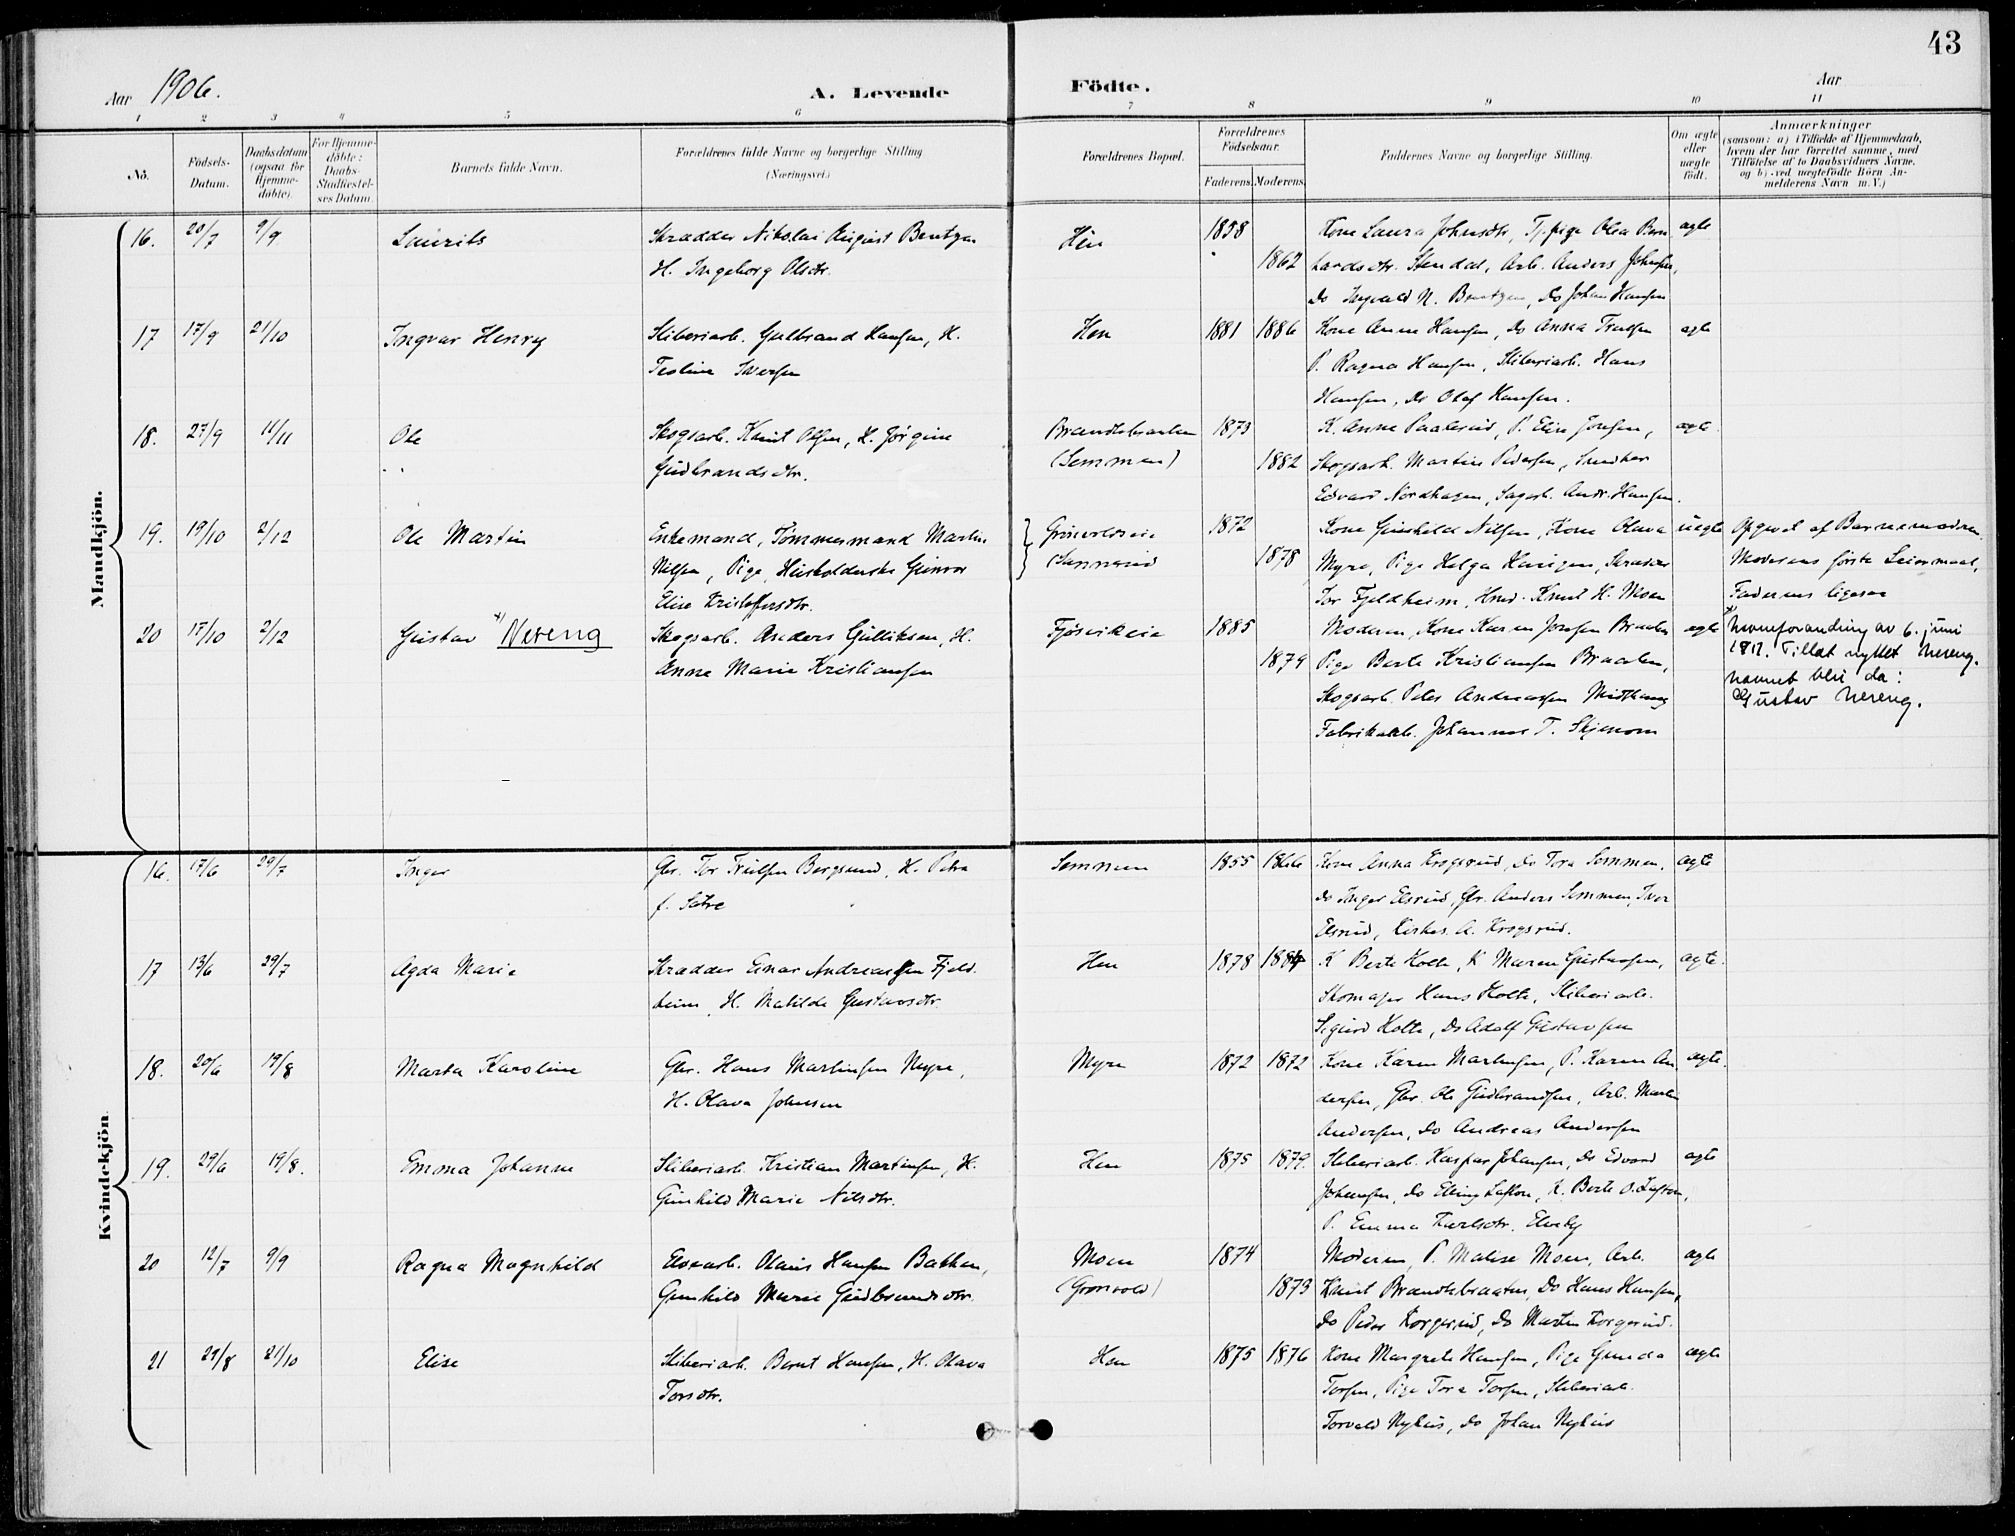 43
Aar 1906.
A. Levende Födte.
Aar
1 2 3 4 5 6 7 8 9 10 11
No.
Födsels-Datum.
Daabsdatum (ogsaa for Hjemmedöbte).
For Hjemmedöbte: Daabs-Stadfæstelses Datum.
Barnets fulde Navn.
Forældrenes fulde Navne og borgerlige Stilling
(Næringsvei.)
Forældrenes Bopæl.
Forældrenes Födselsaar.
Faderens. Moderens.
Faddernes Navne og borgerlige Stilling.
Om ægte eller uægte født.
Anmærkninger
(saasom: a) i Tilfælde af Hjemmedaab,
hvem der har forrettet samme, med
Tilföielse af to Daabsvidners Navne,
og b) ved uægtefödte Börn An-
melderens Navn m. V.)
Mandkjön.
16. 20/7 9/9 Laurits Skrædder Nikolai August Bentzen Hen 1858 Kone Laura Johnsdtr, Tj.pige Olea Bern ægte
H. Ingeborg Olsdtr. 1862 hardsdtr. Stendal, Arb. Anders Johnsen,
Do Ingvald N. Bentzen, Do Johan Hansen
17 17/9 21/10 Ingvar Henry Sliberiarb. Gulbrand Hansen, H. Hen 1881 1886 Kone Anne Hansen, Do Anna Trulsen ægte
Teoline Iversen P. Ragna Hansen, Sliberiarb. Hans
Hansen, Do Olaf Hansen.
18. 27/9 11/11 Ole Skogsarb. Knut Olsen, H. Jørgine Brandtebraaten 1873 K. Anne Paalerud, P. Elise Jonsen, ægte
Gudbrandsdtr. (Semmen) 1882 Skogsarb. Martin Pedersen,
Edvard Nordhagen, Sagarb. Andr. Hansen.
19. 19/10 2/12 Ole Martin Enkemand, Tømmermand Martin Grönvoldseie 1872 Kone Gunhild Nilsen, Kone Olava uægte Opgivet af Barnemoderen.
Nilsen, Pige, Husholderske Gunvor 1878 Myre, Pige Helga Hansen, Skrædder Moderens første Leiermaal,
Elise Kristoffersdtr. Tor Fjeldheim, Knut H. Moen Faderens ligesaa
20 17/10 2/12 Gustav x) Nereng Skogsarb. Anders Gulliksen, H. 1885 Moderen, Kone Karen Jonsen Braaten ægte x) Navneforandring av 6. juni
Anne Marie Kristiansen 1879 Pige Berte Kristiansen Braaten, Tillat nyttet Nereng.
Skogsarb. Peder Andreassen Midthaug navnet blir da:
Fabrikarb. Johannes T. Skjenom Gustav Nereng.
Kvindekjön
16. 17/6 29/7 Inger Gbr. Tor Trulsen Bergsund, H. Petra Semmen 1855 1866 Kone Anna Krogsrud, Do Tora Semmen, ægte
f. Sætre Do Inger Elsrud, Gbr. Anders Semmen, Iver
Elsrud, Kirkes. A. Krogsrud.
17 13/6 29/7 Agda Marie Skrædder Einar Andreassen Fjeld- Hen 1878 1884 K Berte Holte, K Maren Gustavsen, ægte.
heim, H. Matilde Gustavsdtr. Skomager Hans Holte, Sliberiarb.
Sigurd Holte, Do Adolf Gustavsen
18. 20/6 19/8 Marta Karoline Gbr. Hans Martinsen Myre, Myre 1872 1872 Kone Karen Martinsen, P. Karen An- ægte.
H. Olava Johnsen dersen, Gbr. Ole Gudbrandsen, Arb. Martin
Andersen, Do Andreas Andersen
19. 29/6 19/8. Emma Johanne Sliberiarb. Kristian Martinsen, H. Hen 1875 1879. Sliberiarb. Kaspar Johansen, Do Edvard ægte
Gunhild Marie Nilsdtr. Johansen, Do Elling Lafton, K. Berte O. Lafton,
P. Emma Karlsdtr. Elveby
20 12/7 9/9 Ragna Magnhild Elvearb. Olaus Hansen Bakken, Moen 1874 Moderen, P. Matise Moen, Arb. ægte
Gunhild Marie Gudbrandsdtr. (Grönvold) 1873 Knut Brandtebraaten, Do Hans Hansen,
Do Peder Korgerud, Do Martin Korgerud.
21 29/8 21/10 Elise Sliberiarb. Bernt Hansen, H. Olava Hen 1875 1876 Kone Margrete Hansen, Pige Gunda ægte
Torsdtr. Torsen, Pige Tora Torsen, Sliberiarb.
Torvald Nyhus, Do Johan Nyhus